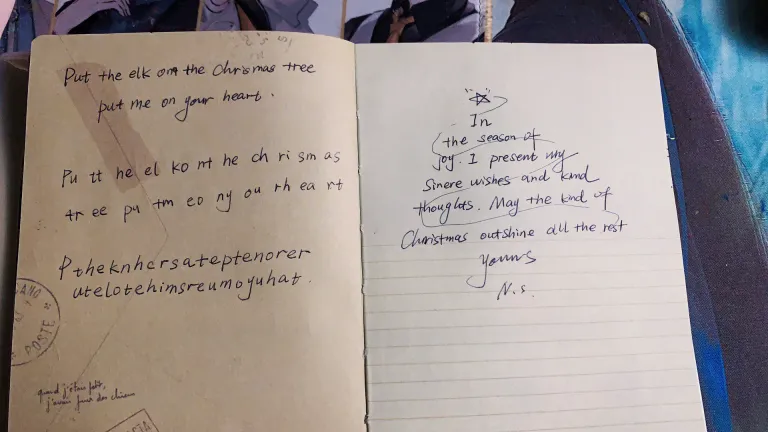 Put the elk on the Chrismas tree
put me on your heart.
Pu tt he el ko nt he ch ri sm as
tr ee pu tm eo ny ou rh ea rt
Ptheknhcrsateptenorer
utelotehimsreumoyuhat.
POSTE
quand j'étais petit,
In
the season of
joy. I present my
Sinere wishes and kind
thoughts. May the kind of
Christmas outshine all the rest
yours
N.s.